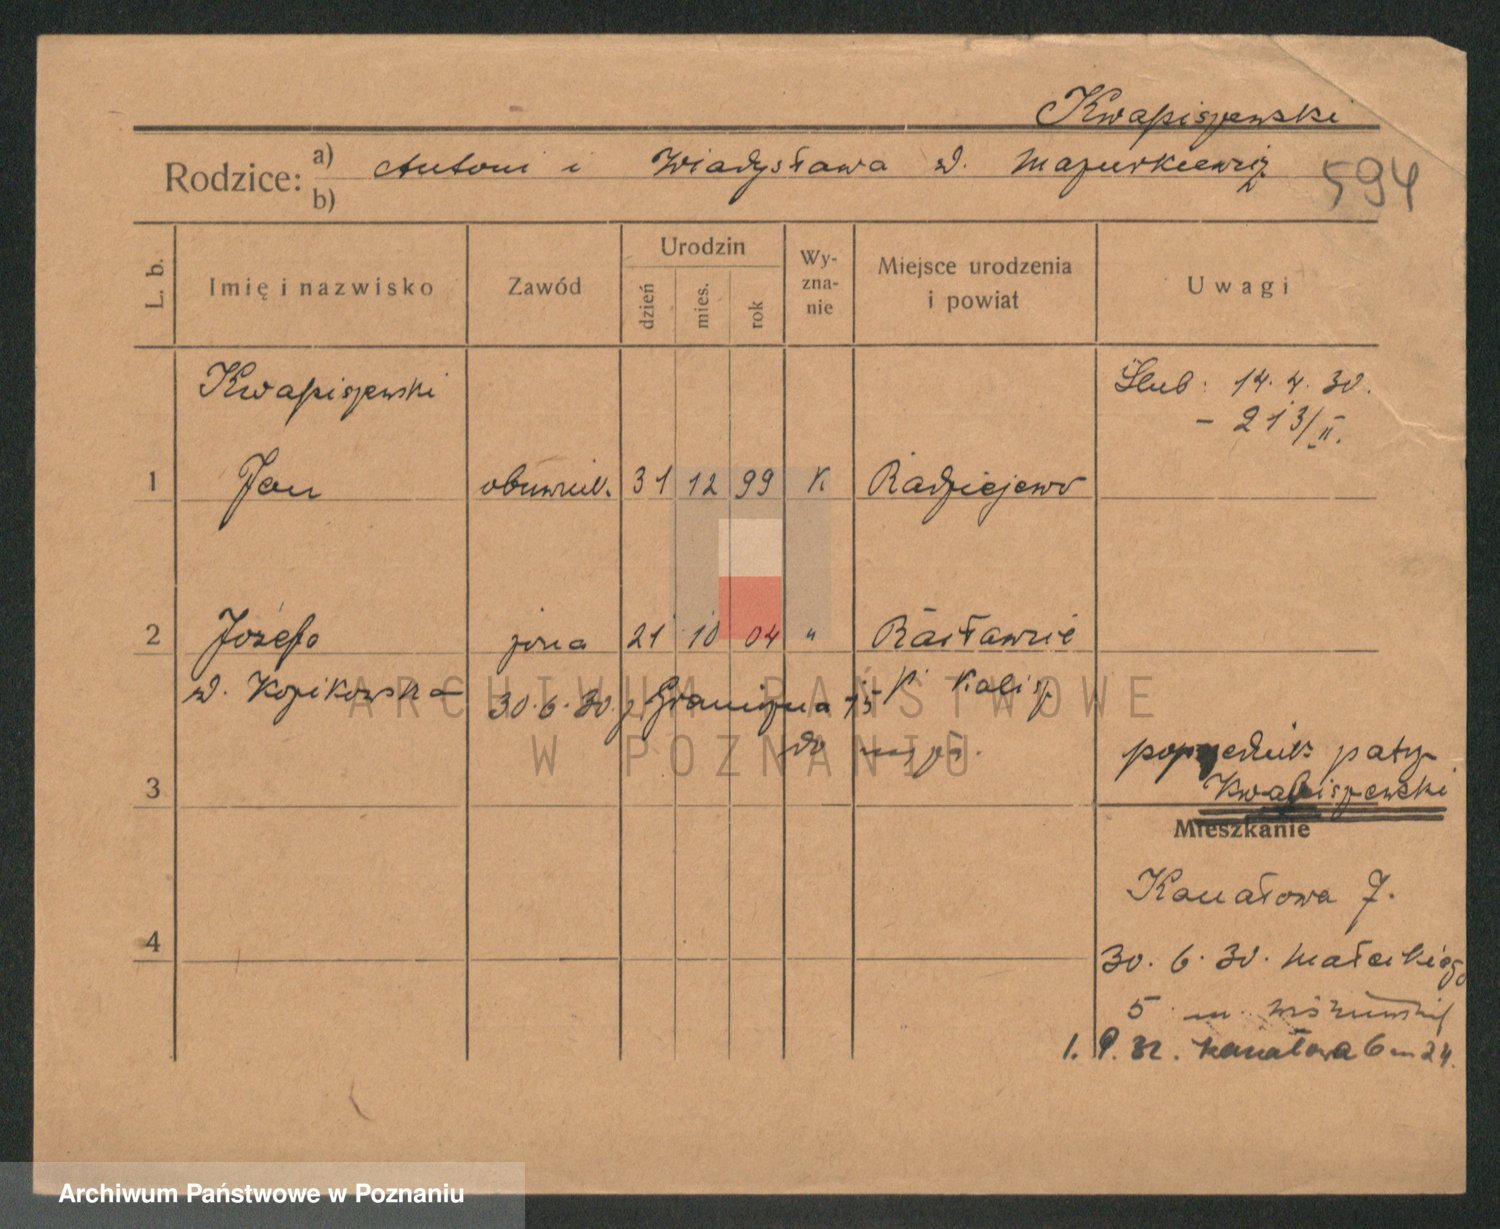 Kwapiszewski
Rodzice: a) Antoni i Władysława d. Mazurkiewicz
b)
594
L. b.
Imię i nazwisko
Zawód
Urodzin
dzień
mies.
rok
Wy-
zna-
nie
Miejsce urodzenia
i powiat
Uwagi
Kwapiszewski
Ślub: 14. 4. 30.
- 213/II.
1 Jan obuwnik. 31 12 99 K. Radziejewo
2 Józefa żona 21 10 04 " Rasławice
d. Kozikowska
30.6.30. z Graniczna 15 p. Kalisz
do
poprzednik patrz
Kwabiszewski
3
Mieszkanie
Kanałowa 7.
4
30. 6. 30. Małeckiego
5 m.
1. 9. 32. Kanałowa 6 m 24.
ARCHIWUM PAŃSTWOWE
W POZNANIU
Archiwum Państwowe w Poznaniu